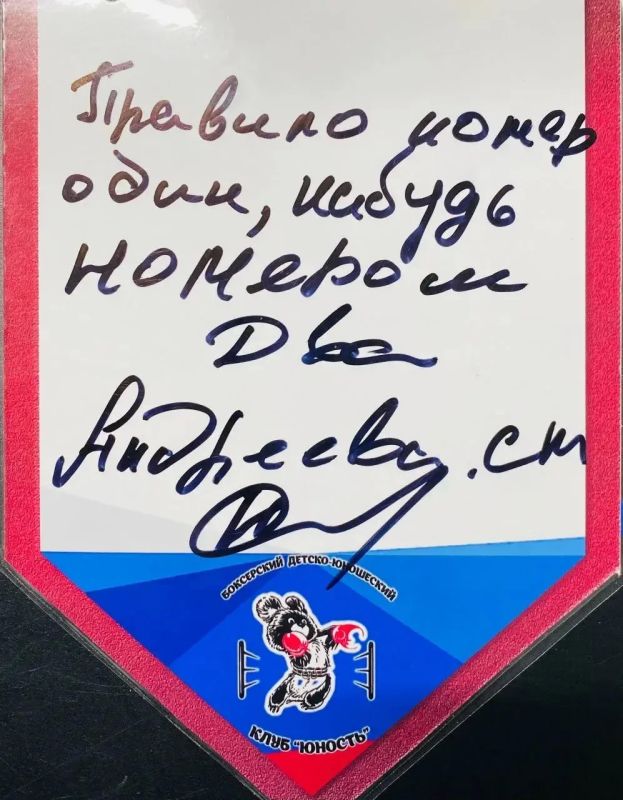 Правило номер
один, нибудь
номером
два
Андреева
БОКСЕРСКИЙ ДЕТСКО-ЮНОШЕСКИЙ
КЛУБ "ЮНОСТЬ"